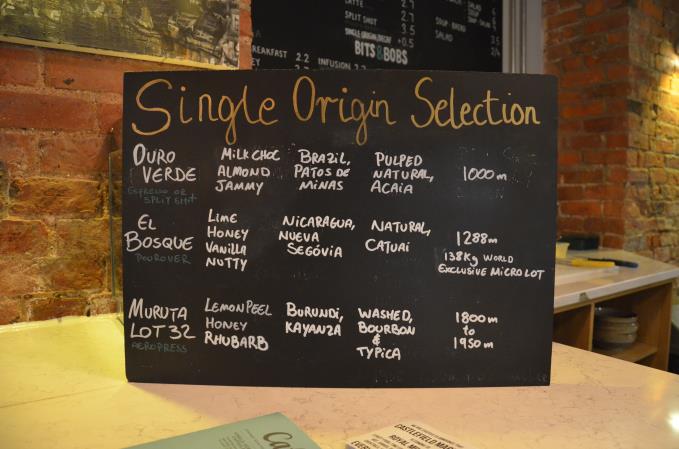 LATTE 2.7
SPLIT SHOT 2.2
SINGLE ORIGIN/DECAF +0.5
BITS&BOBS
BREAKFAST 2.2 INFUSION 2.2
SOUP BREAD
SALAD
Single Origin Selection
OURO VERDE
ESPRESSO OR SPLIT SHOT
MILK CHOC
ALMOND
JAMMY
BRAZIL,
PATOS DE
MINAS
PULPED
NATURAL,
ACAIA
1000m
EL BOSQUE
POUROVER
LIME
HONEY
VANILLA
NUTTY
NICARAGUA,
NUEVA
SEGÓVIA
NATURAL,
CATUAI
1288m
138Kg WORLD
EXCLUSIVE MICROLOT
MURUTA
LOT 32
AEROPRESS
LEMON PEEL
HONEY
RHUBARB
BURUNDI,
KAYANZA
WASHED,
BOURBON
&
TYPICA
1800m
to
1950m
CASTLEFIELD
ROYAL